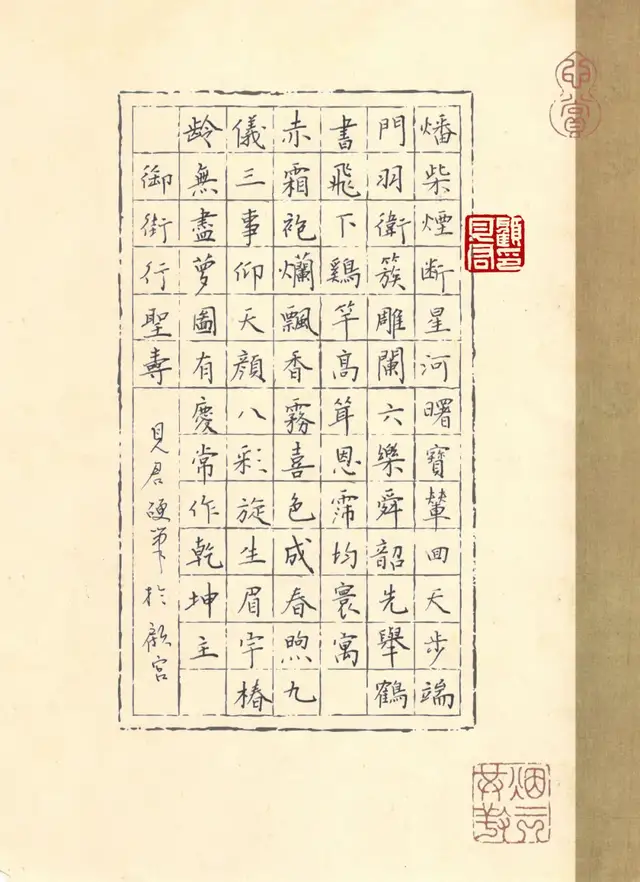 燔柴煙断星河曙寶輦回天步端
門羽衛簇雕闌六樂舜韶先舉鶴
書飛下鷄竿高聳恩霈均寰寓
赤霜袍爛飄香霧喜色成春煦九
儀三事仰天顏八彩旋生眉宇椿
龄無盡萝圖有慶常作乾坤主
御街行聖壽
見君硬筆於顧宮